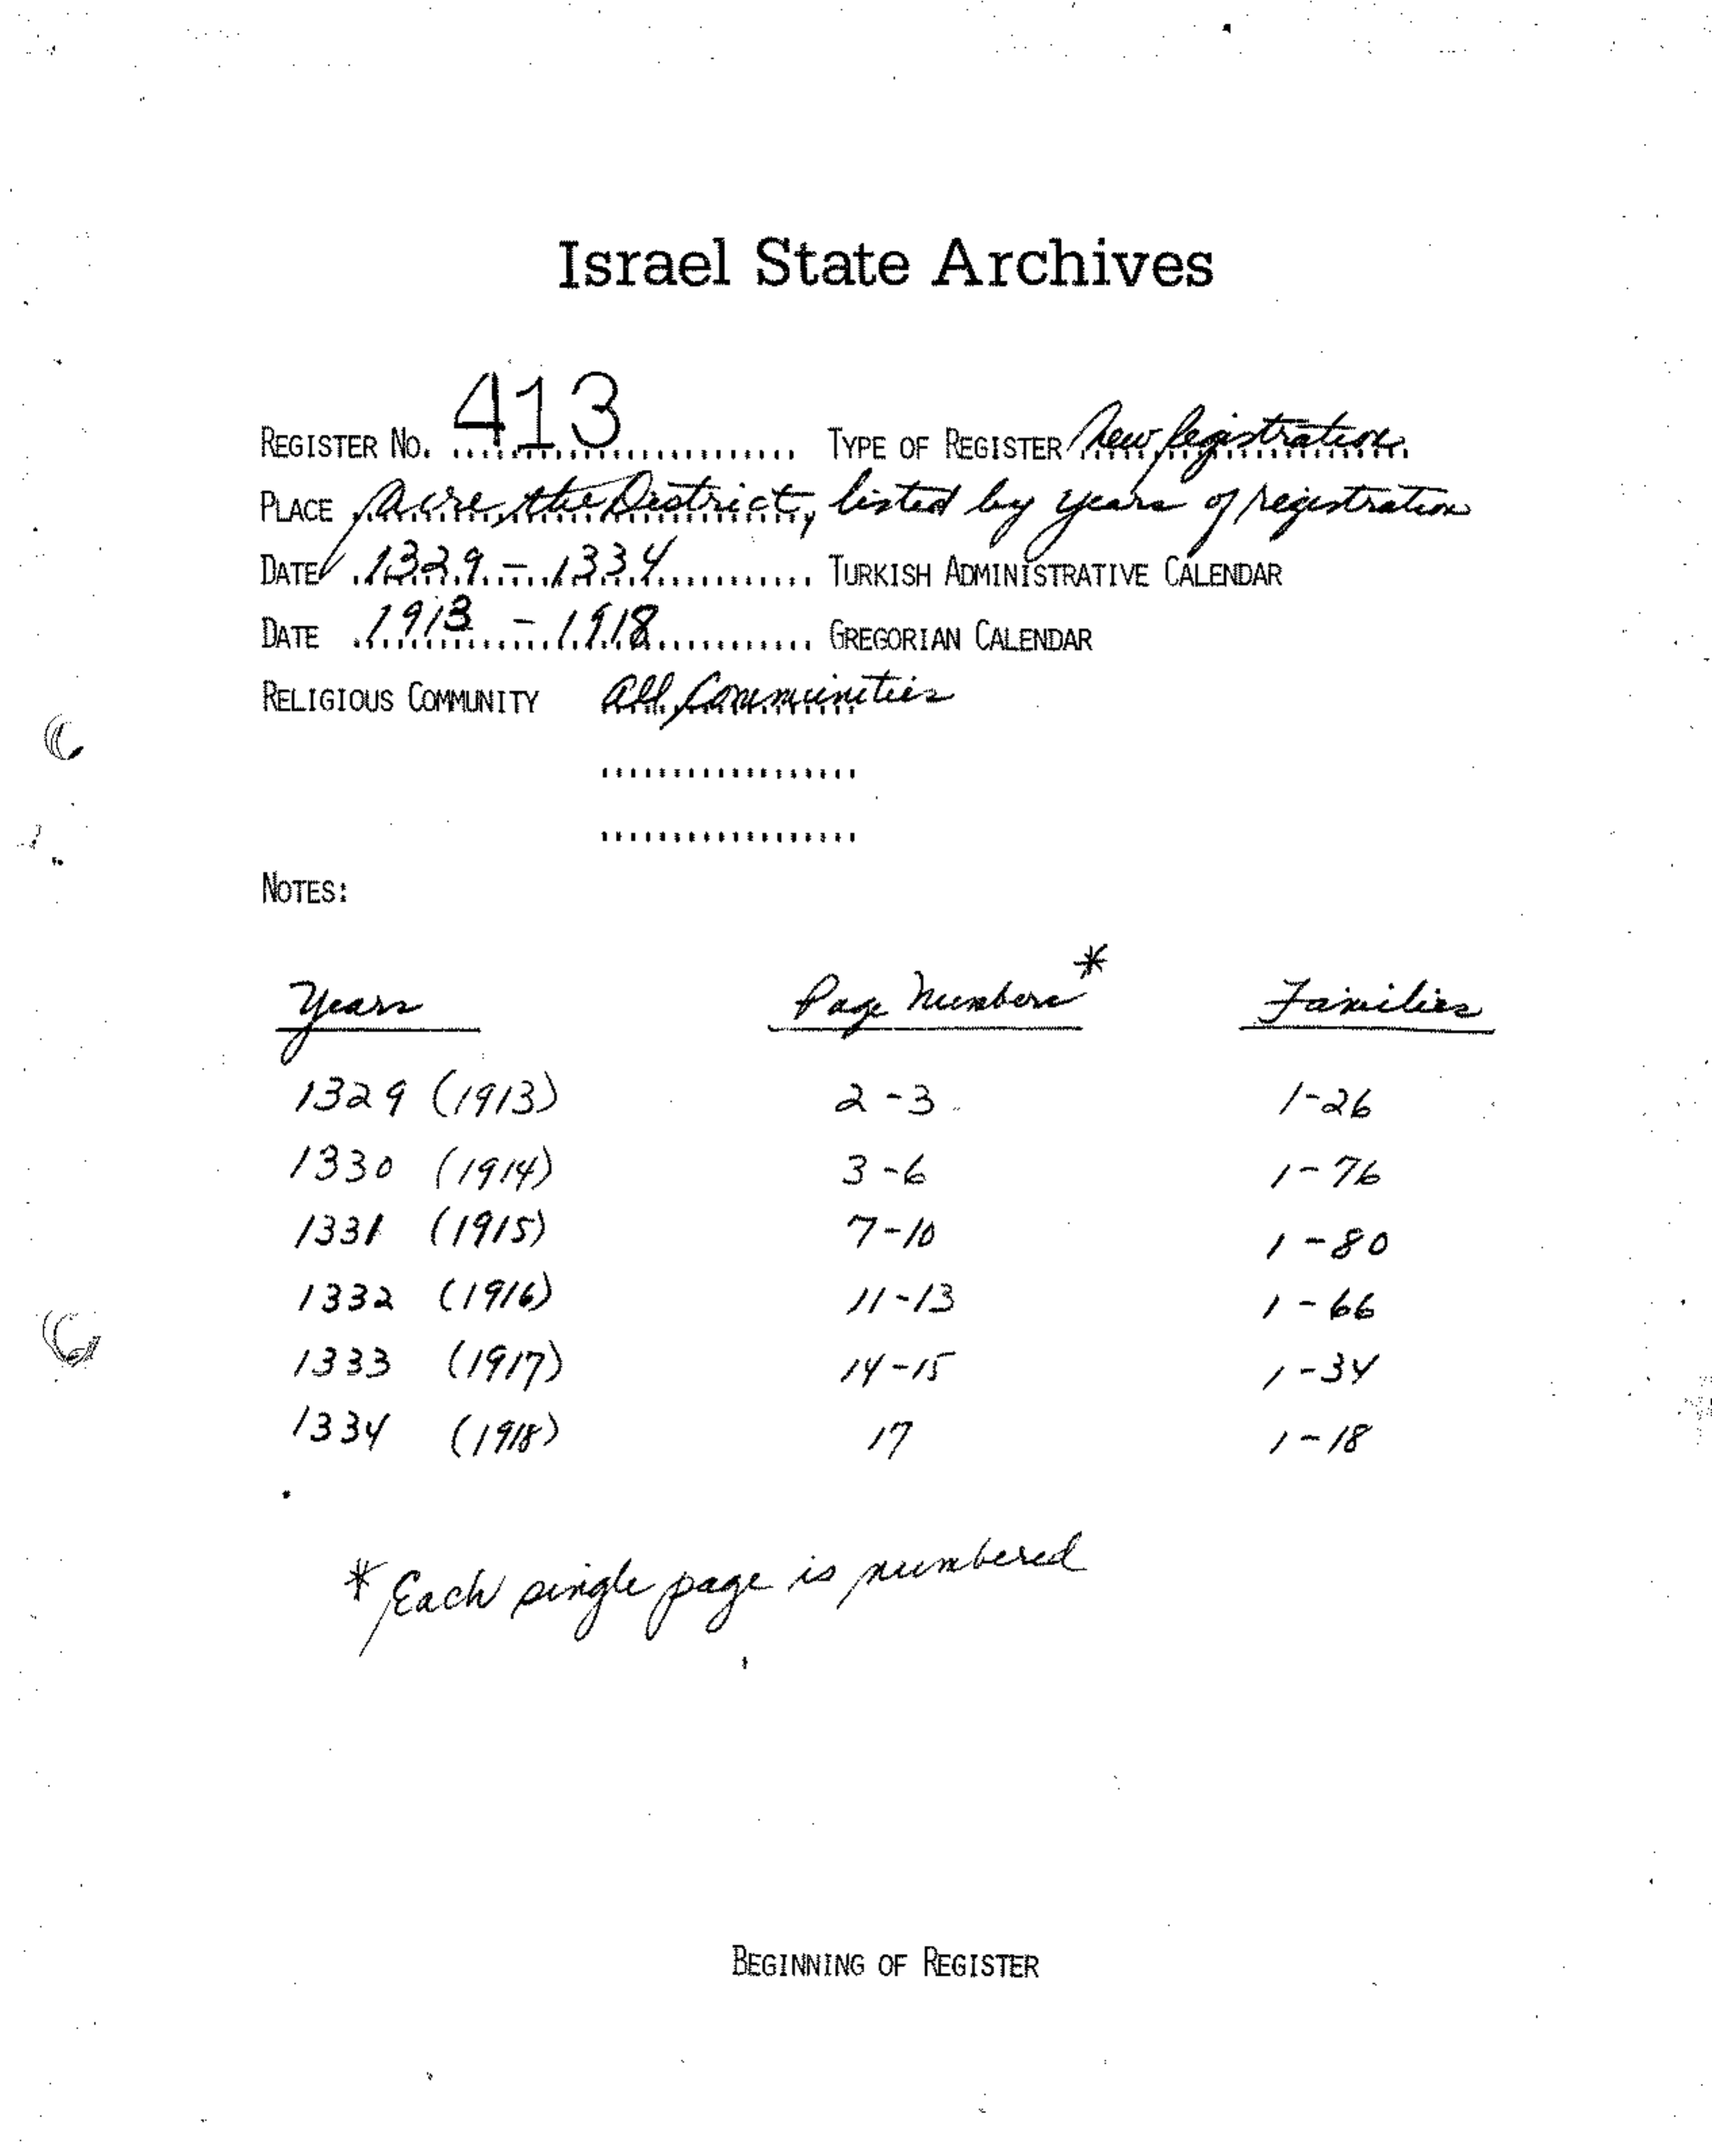 Israel State Archives
REGISTER NO. 413 TYPE OF REGISTER New Registration
PLACE Acre, the District, listed by years of registration
DATE 1329 - 1334 TURKISH ADMINISTRATIVE CALENDAR
DATE 1913 - 1918 GREGORIAN CALENDAR
RELIGIOUS COMMUNITY All Communities
NOTES:
Years Page Numbers* Families
1329 (1913) 2-3 1-26
1330 (1914) 3-6 1-76
1331 (1915) 7-10 1-80
1332 (1916) 11-13 1-66
1333 (1917) 14-15 1-34
1334 (1918) 17 1-18
* Each single page is numbered
BEGINNING OF REGISTER